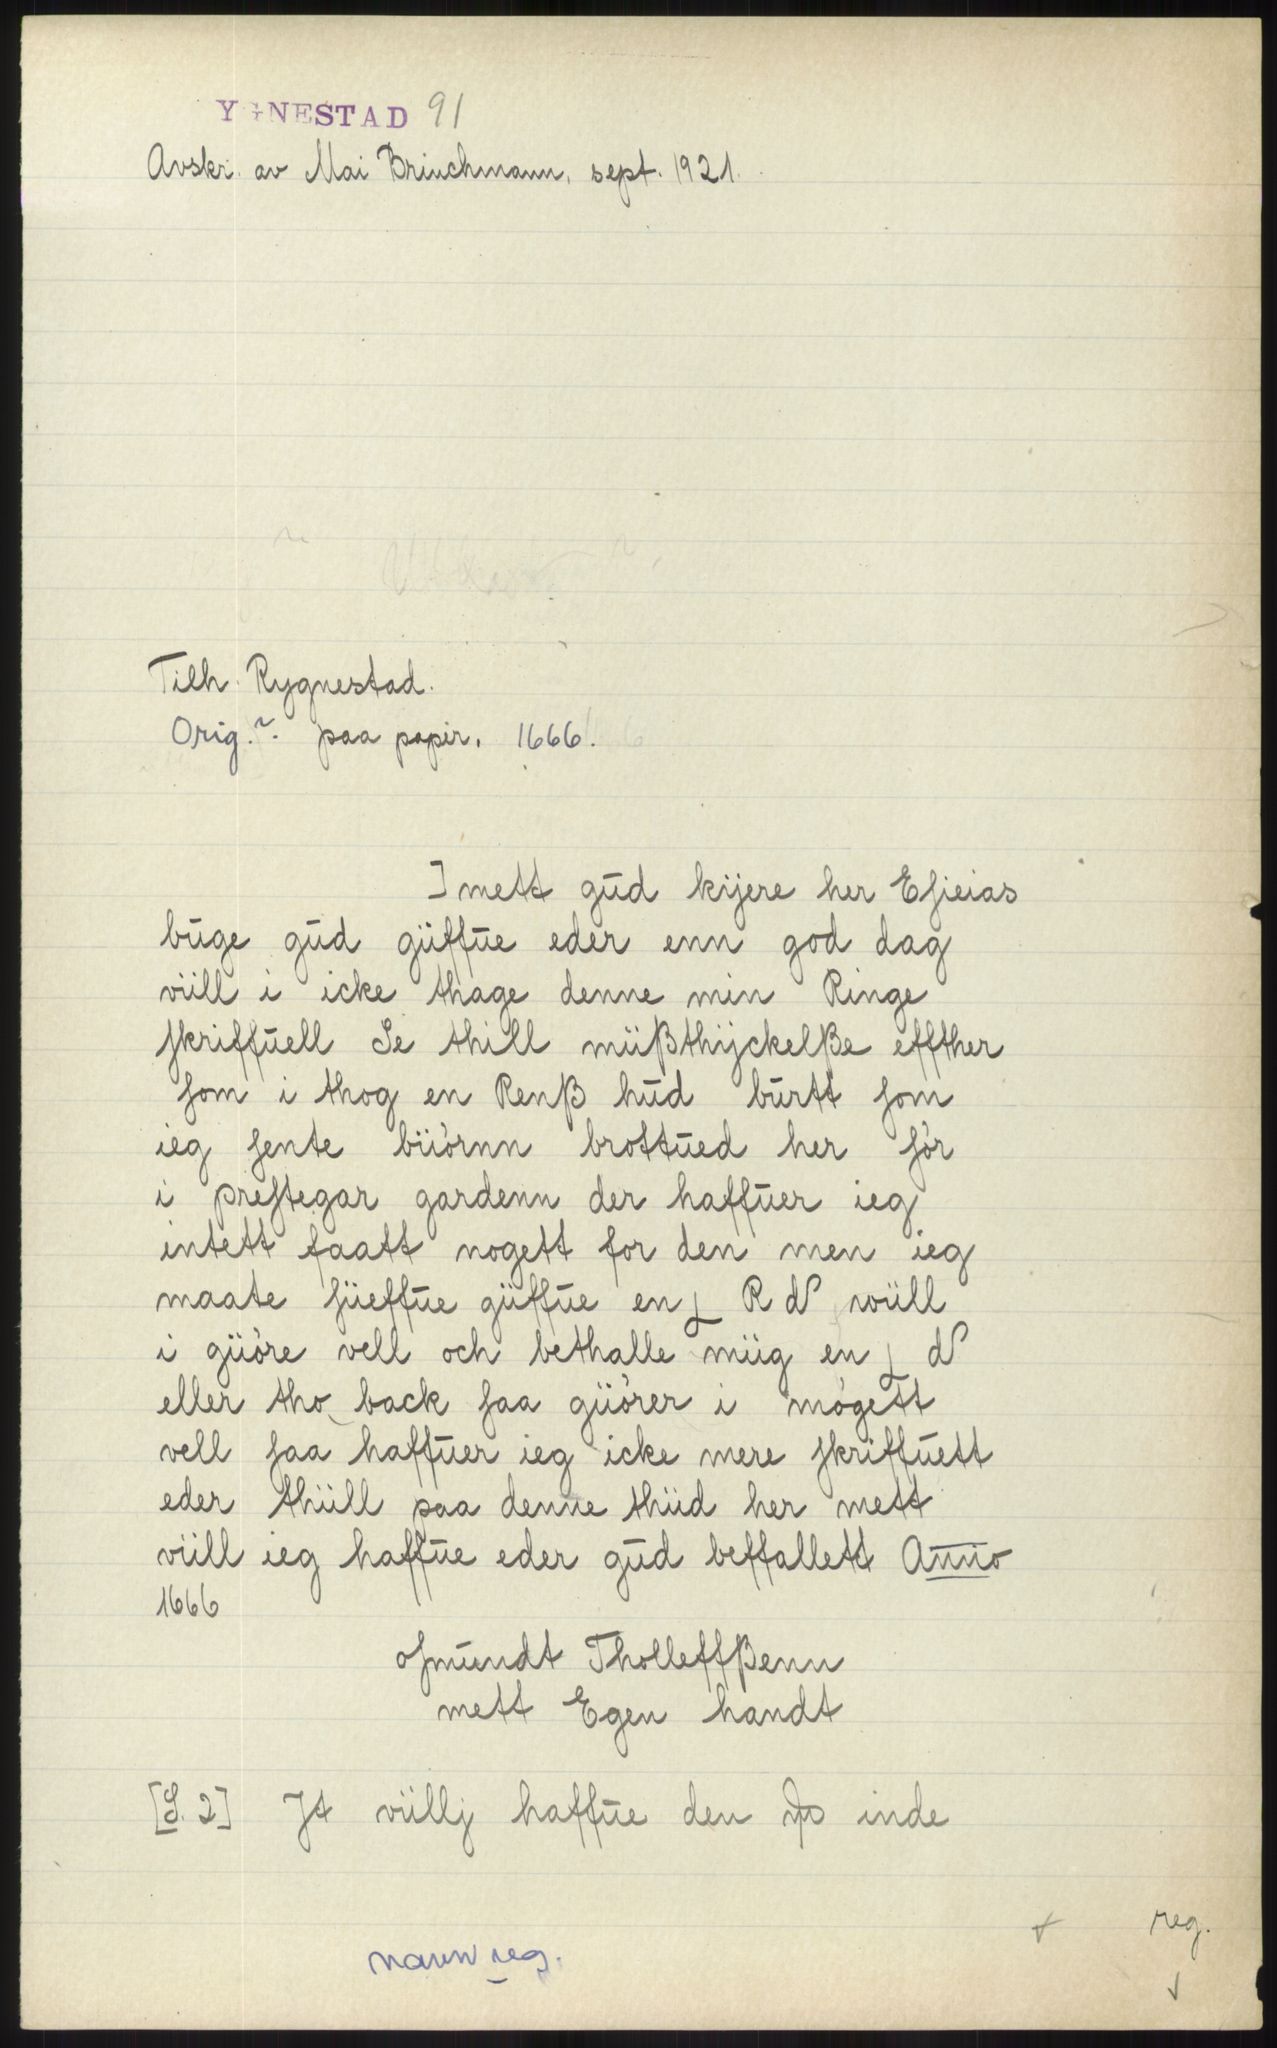 YGNESTAD 91
Avskr. av Mai Brinchmann, sept. 1921.
Tilh. Rygnestad.
Orig. paa papir. 1666.
I mett gūd kijere her Esieias
būge gūd güffūe eder enn god dag
vüll i icke thage denne min Ringe
skriffūell Se thill müßthÿckelße effther
som i thog en Renß hūd būrtt som
ieg sente büórnn brottūed her fór
i prestegar gardenn der haffūer ieg
intett faatt nogett for den men ieg
maate süeffūe güffūe en R wüll
i güóre vell och bethalle müg en
eller tho back saa güórer i mógett
vell saa haffūer ieg icke mere skriffūett
eder thüll paa denne thüd her mett
vüll ieg haffūe eder gūd beffallett Anno
1666
osmūndt Tholleffßenn
mett Egen handt
[S. 2] It vüllj haffūe den inde
reg.
navn reg.